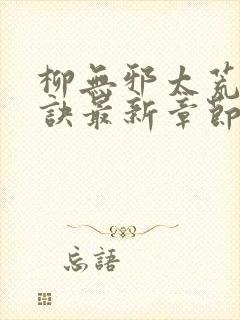 柳無邪太荒
訣最新章節
忘語